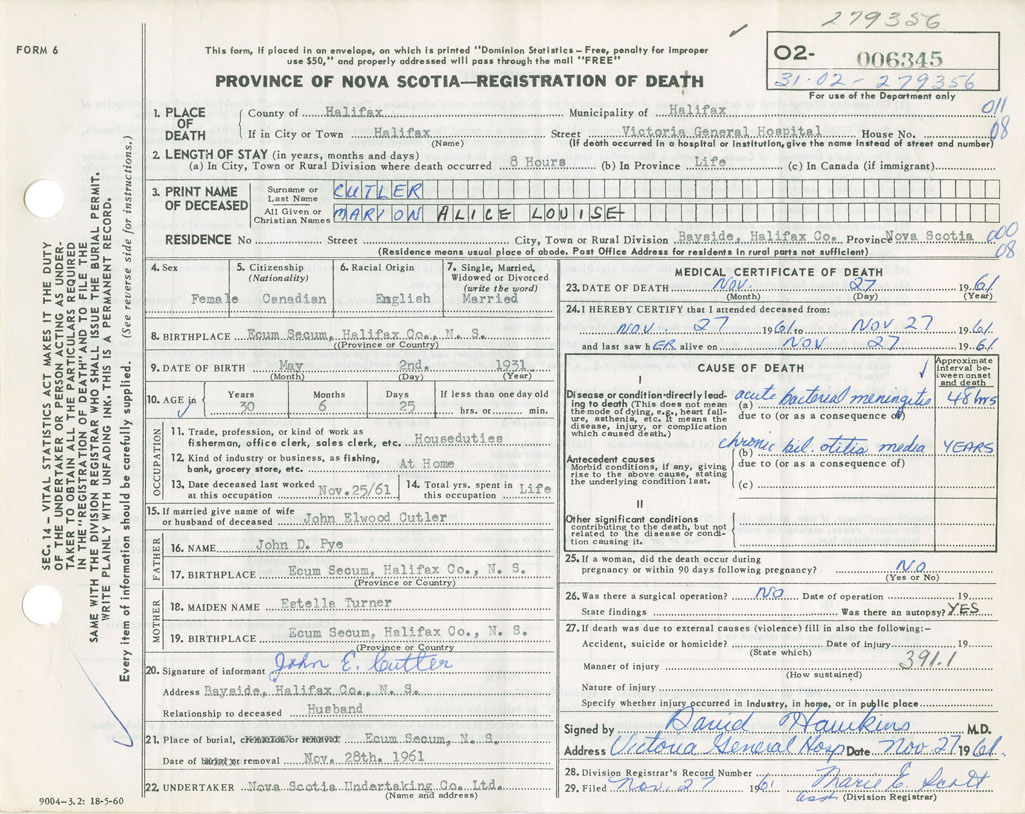 279356
FORM 6
This form, if placed in an envelope, on which is printed "Dominion Statistics – Free, penalty for improper
use $50," and properly addressed will pass through the mail "FREE"
PROVINCE OF NOVA SCOTIA—REGISTRATION OF DEATH
O2- 006345
31-02-279356
For use of the Department only
011
08
1. PLACE OF DEATH
County of Halifax Municipality of Halifax
If in City or Town Halifax Street Victoria General Hospital House No.
(Name) (If death occurred in a hospital or institution, give the name instead of street and number)
2. LENGTH OF STAY (in years, months and days)
(a) In City, Town or Rural Division where death occurred 8 Hours (b) In Province Life (c) In Canada (if immigrant)
3. PRINT NAME OF DECEASED
Surname or Last Name CUTLER
All Given or Christian Names MARION ALICE LOUISE
RESIDENCE No Street City, Town or Rural Division Bayside, Halifax Co. Province Nova Scotia
(Residence means usual place of abode. Post Office Address for residents in rural parts not sufficient)
000
08
4. Sex Female
5. Citizenship (Nationality) Canadian
6. Racial Origin English
7. Single, Married, Widowed or Divorced (write the word) Married
8. BIRTHPLACE Ecum Secum, Halifax Co., N. S.
((Province or Country)
9. DATE OF BIRTH May 2nd. 1931
(Month) (Day) (Year)
10. AGE in Years 30 Months 6 Days 25 If less than one day old
hrs. or min.
OCCUPATION
11. Trade, profession, or kind of work as
fisherman, office clerk, sales clerk, etc. Houseduties
12. Kind of industry or business, as fishing,
bank, grocery store, etc. At Home
13. Date deceased last worked at this occupation Nov.25/61
14. Total yrs. spent in this occupation Life
15. If married give name of wife
or husband of deceased John Elwood Cutler
FATHER
16. NAME John D. Pye
17. BIRTHPLACE Ecum Secum, Halifax Co., N. S.
(Province or Country)
MOTHER
18. MAIDEN NAME Estella Turner
19. BIRTHPLACE Ecum Secum, Halifax Co., N. S.
(Province or Country)
20. Signature of informant John E. Cutler
Address Bayside, Halifax Co., N. S.
Relationship to deceased Husband
21. Place of burial, cremation or removal Ecum Secum, N. S.
Date of burial or removal Nov. 28th. 1961
22. UNDERTAKER Nova Scotia Undertaking Co. Ltd.
(Name and address)
MEDICAL CERTIFICATE OF DEATH
23. DATE OF DEATH Nov. 27 1961
(Month) (Day) (Year)
24. I HEREBY CERTIFY that I attended deceased from:
NOV. 27 1961 to NOV 27 1961.
and last saw hER alive on NOV 27 1961
CAUSE OF DEATH
Approximate interval between onset and death
I
Disease or condition directly leading to death (This does not mean the mode of dying, e.g., heart failure, asthenia, etc. It means the disease, injury, or complication which caused death.)
(a) acute bacterial meningitis 48 hrs
due to (or as a consequence of)
Antecedent causes
Morbid conditions, if any, giving rise to the above cause, stating the underlying condition last.
(b) chronic bil. otitis media YEARS
due to (or as a consequence of)
(c)
II
Other significant conditions
contributing to the death, but not
related to the disease or condition causing it.
25. If a woman, did the death occur during
pregnancy or within 90 days following pregnancy? NO
(Yes or No)
26. Was there a surgical operation? NO Date of operation 19
State findings Was there an autopsy? YES
27. If death was due to external causes (violence) fill in also the following:–
Accident, suicide or homicide? Date of injury 19
(State which)
391.1
Manner of injury
(How sustained)
Nature of injury
Specify whether injury occurred in Industry, in home, or in public place
Signed by David Hawkins M.D.
Address Victoria General Hosp Date Nov 27 1961.
28. Division Registrar's Record Number
29. Filed Nov. 27 1961 Marie E. Scott
(Division Registrar)
SEC. 14 – VITAL STATISTICS ACT MAKES IT THE DUTY
OF THE UNDERTAKER OR PERSON ACTING AS UNDER-
TAKER TO OBTAIN ALL THE PARTICULARS REQUIRED
IN THE "REGISTRATION OF DEATH" AND TO FILE THE
SAME WITH THE DIVISION REGISTRAR WHO SHALL ISSUE THE BURIAL PERMIT.
WRITE PLAINLY WITH UNFADING INK. THIS IS A PERMANENT RECORD.
Every item of information should be carefully supplied. (See reverse side for instructions.)
9004-3.2: 18-5-60